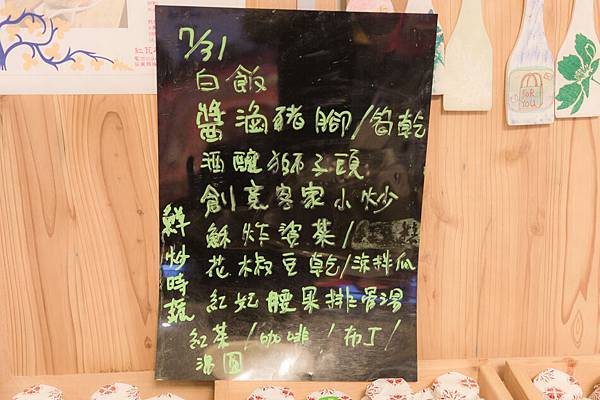 7/31
白飯
醬滷豬腳/筍乾
酒釀獅子頭
創意客家小炒
酥炸婆菜/
花椒豆乾/涼拌瓜
紅妃腰果排骨湯
紅茶/咖啡/布丁/
湯圓
鮮炒時蔬
FOR YOU